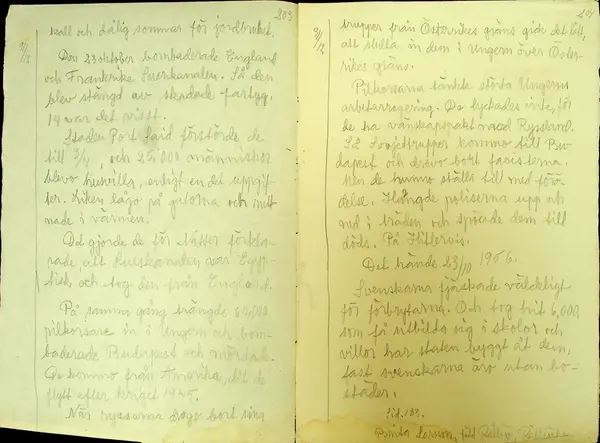 203
31/12
kall och dålig sommar för jordbruket.
Den 23 oktober bombaderade England
och Frankrike Sueskanalen. Så den
blev stängd av skadade fartyg.
14 var det visst.
Staden Port Said förstörde de
till 3/4, och 25,000 människor
blevo husvilla, enligt en del uppgif-
ter. Liken lågo på gatorna och rutt-
nade i värmen.
Det gjorde de för Nasser förkla-
rade, att Sueskanalen var Egyp-
tisk och tog den från England.
På samma gång trängde 60,000
pilkorsare in i Ungern och bom-
baderade Budapest och mördade.
De kommo från Amerika, dit de
flytt efter kriget 1945.
När ryssarna drogo bort sina
204
31/12
trupper från Österrikes gräns gick det lätt,
att ställa in dem i Ungern över Öster-
rikes gräns.
Pilkorsarna tänkte störta Ungerns
arbetarregering. De lyckades inte, för
de ha vänskapspakt med Ryssland.
Så Sovjettrupper kommo till Bu-
dapest och drevo bort fascisterna.
Men de hunno ställt till med förö-
delse. Hängde poliserna upp och
ned i träden och spöade dem till
döds. På Hitlervis.
Det hände 23/10 1956.
Svenskarna fjäskade väldeligt
för förbrytarna. Och tog hit 6,000,
som få utbilda sig i skolor och
villor har staten byggt åt dem,
fast svenskarna äro utan bo-
städer.
Sid. 183.
Brita Larsson, född